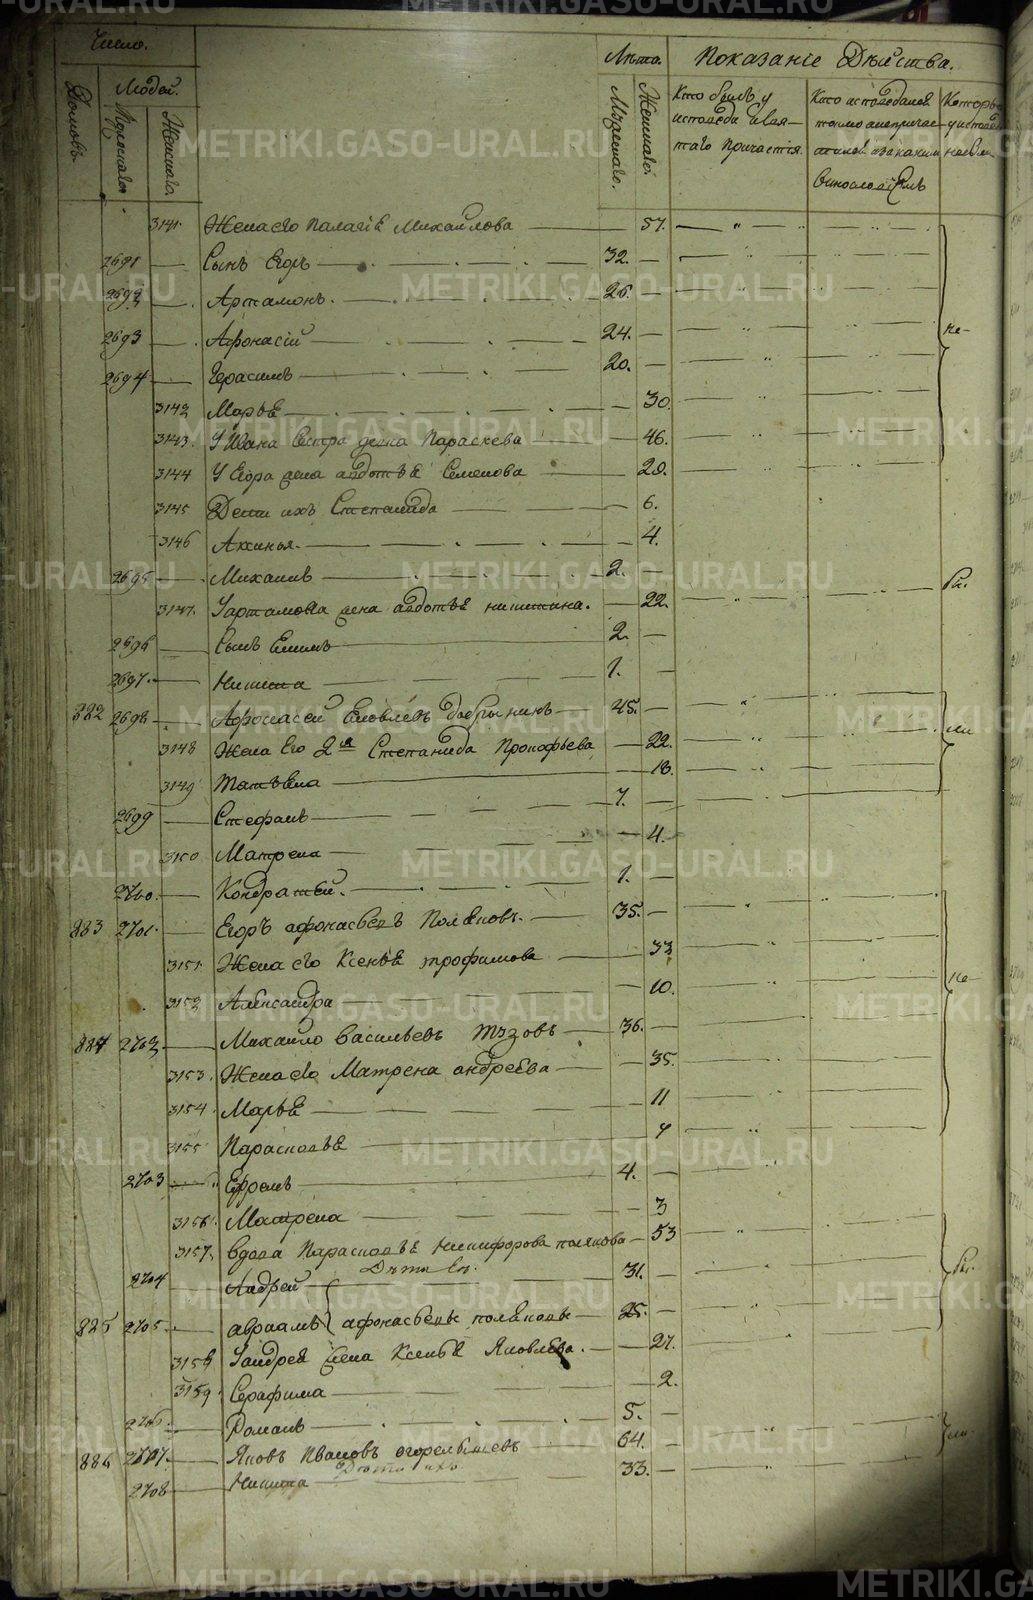 Число.
Лѣта.
Показаніе Дѣйства.
Домовъ.
Людей.
Мужескаго.
Женскаго.
Мужескаго.
Женскаго.
Кто былъ у исповѣди и святаго причастія
Кто исповѣдался токмо а не причастился и за какимъ винословіемъ
3141. Жена его Палагіѣ Михаилова 57.
2691 Сынъ Егоръ 32.
2692 Артамонъ. 26.
2693 Афонасій 24.
2694 Герасимъ 20.
3142 Марьѣ 30.
3143. У Ивана Сестра девка Параскева 46.
3144 У Егора жена авдотьѣ Семенова 28.
3145 Дети ихъ Степанида 6.
3146 Аксинья. 4.
2695 Михаилъ 2.
3147. У артамона жена авдотьѣ никитина. 22.
2696 Сынъ Екимъ 2.
2697. Никита 1.
882 2698 Афонасей Яковлевъ добрынинъ 45.
3148 Жена Его 2я Степанида Прокофьева 22.
3149 Татьѣна 18.
2699 Стефанъ 7.
3150 Матрена 4.
2700. Кондратей. 1.
883 2701. Егоръ афонасьевъ Полѣковъ. 35.
3151. Жена его Ксеньѣ трофимова 33
3152 Александра 10.
884 2702. Михаило васильевъ Тѣзовъ 36.
3153. Жена его Матрена андреѣва 35.
3154. Марьѣ 11
3155 Парасковьѣ 7
2703 Ефремъ 4.
3156. Матрена 3
3157. вдова Парасковьѣ Никифорова полякова 53
Дѣти Ея.
2704 Андрей 31.
885 2705. авраамъ афонасьевы полѣковы 25.
3158 У андрея жена Ксеньѣ Яковлева. 27.
3159. Серафима 2.
2706. Романъ 5.
886 2707. Яковъ Ивановъ огорелышевъ 64.
Дѣти ихъ
2708 Никита 33.
METRIKI.GASO-URAL.RU